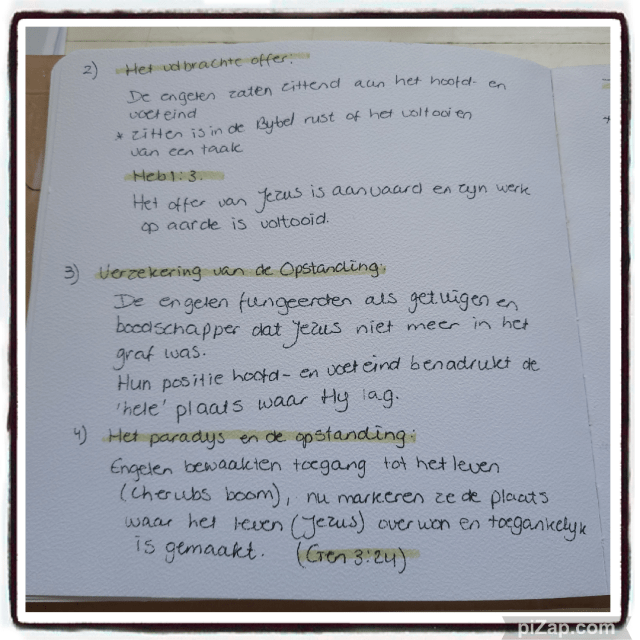 2) Het volbrachte offer:
De engelen zaten zittend aan het hoofd- en
voeteind
* zitten is in de Bybel rust of het voltooien
van een taak
Heb 1:3.
Het offer van Jezus is aanvaard en zyn werk
op aarde is voltooid.
3) Verzekering van de Opstanding:
De engelen fungeerden als getuigen en
boodschapper dat Jezus niet meer in het
graf was.
Hun positie hoofd- en voeteind benadrukt de
'hele' plaats waar Hy lag.
4) Het paradys en de opstanding:
Engelen bewaakten toegang tot het leven
(Cherubs boom), nu markeren ze de plaats
waar het leven (Jezus) overwon en toegankelyk
is gemaakt. (Gen 3:24)
piZap.com